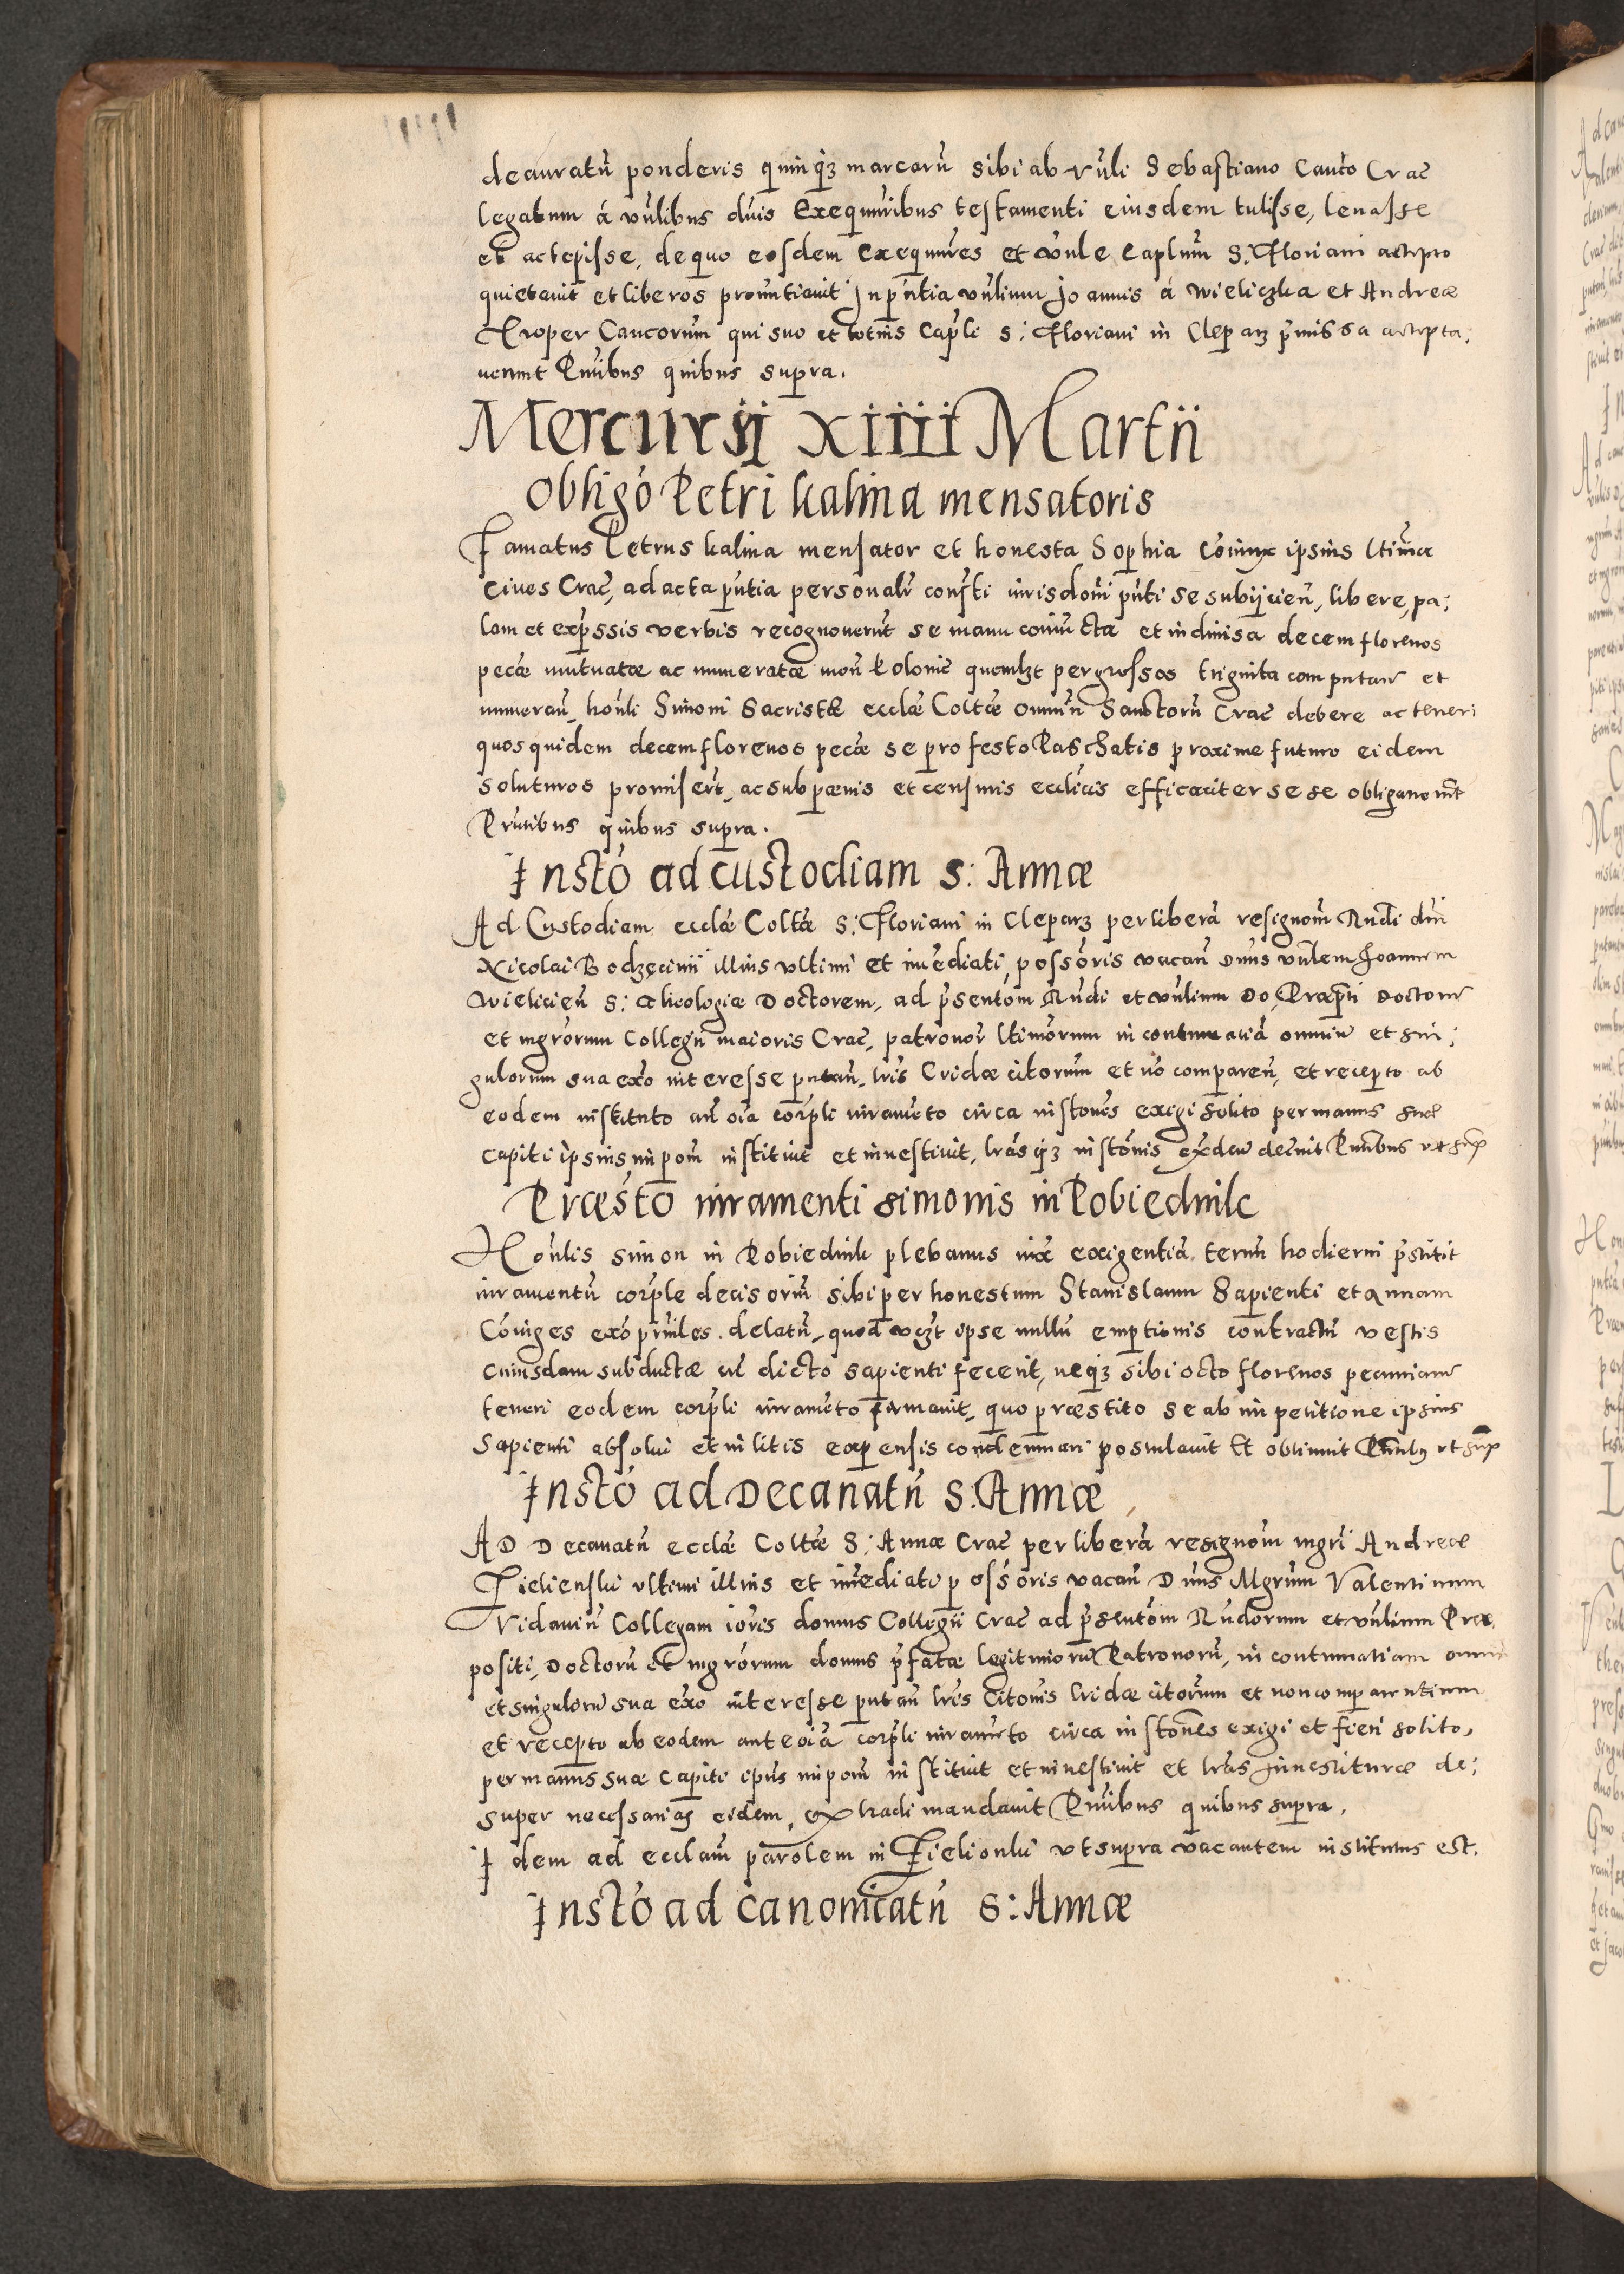 deauratū ponderis quinqz marcarū sibi ab vūli Sebastiano Cantō Crac̄
legatum á vūlibus dn̄is Exequn̄ribus testamenti eiusdem tulisse, leuasse
et accepisse, de quo eosdem Exequn̄res et vn̄le Caplum̄ S. Floriani
quietauit et liberos pron̄untiauit Jn p̄n̄tia vūlium Joannis á Wieliczka et Andreæ
Proper Cancorum̄ qui suo et totius Capl̄i S: Floriani in Cleparz p̄missa accepta;
uerunt Pn̄tibus quibus supra.
Mercurij XIIII Martii
Obligō Petri kalina mensatoris
Famatus Petrus kalina mensator et honesta Sophia Cōiunx ipsius ltim̄a
Ciues Crac̄, ad acta p̄ntia personalr̄ consti iurisdoni p̄nti se subijcien̄, libere, pa;
lam et exp̄ssis verbis recognouerūt se manu coniuncta et indiuisa decem florenos
pecæ mutuatæ ac numeratæ mon̄ Polonic̄ quemlzt per grossos triginta computan̄ et
numeran̄, hon̄li Simoni Sacristæ eccl̄æ Coltæ omniu̅ Sanctorū Crac̄ debere ac teneri
quos quidem decem florenos pecæ se pro festo Paschatis proxime futuro eidem
soluturos promiser̄t, ac sub pænis et censuris eccl̄icis efficaciter sese obligauerūt
Pn̄tibus quibus supra.
Instō ad custodiam S: Annæ
Ad Custodiam eccl̄æ Coltæ S: Floriani in Cleparz per liberā resignom̄ Rn̄di dn̄i
Nicolai Bodzecinii illius vltimi et imēdiati possoris vacan̄ Dn̄us vn̄lem Joannem
Wielicien̄ S: Theologiæ Doctorem, ad p̄sentom̄ Rn̄di et vūlium Do. Præpti Doctorū
et mgrōrum Collegii maioris Crac̄, patronor̄ ltimorum in contumatiā omniu̅ et sin;
gulorum sua exō interesse putan̄, lr̄is Cridæ citorum et nō comparen̄, et recepto ab
eodem instituto an̄ oīa corp̄li iuramēto circa instones exigi solito per manus suæ
capiti ipsius impom̄ instituit et inuestiuit, lrās qz instonis exden̄ decreuit Pn̄tibus vt sup̄
Præstō iuramenti simonis in Pobiednik
Hon̄lis Simon in Pobiednik plebanus iux̄ exigentiā term̄ hodierni p̄stitit
iuramentū corp̄le decisoriū sibi per honestum Stanislaum Sapienti et Annam
Cōiuges exō prūiles. delatū, quod vczt ipse nullū emptionis contractū vestis
cuiusdam subductæ cū dicto sapienti fecerit, neqz sibi octo florenos pecuniarū
teneri eodem corp̄li iuramēto firmauit, quo præstito se ab impetitione ipsius
Sapienti absolui et in litis expensis condemnari postulauit Et obtinuit Pn̄tibus vt sup̄
Instō ad Decanatū S. Annæ
AD Decanatū eccl̄æ Coltæ S: Annæ Crac̄ per liberā resignom̄ mgri Andreæ
vltimi illius et imēdiati possoris vacan̄ Dn̄us Mgrūm Valentinum
Vidauin̄ Collegam iōris domus Collegii Crac̄ ad p̄sentōm Rn̄dorum et vn̄lium Præ
positi, Doctorū et mgrōrum domus p̄fatæ legitimorū Patronorū, in contumatiam
et singulorū sua exō interesse putan̄ lr̄is Citonis Cridæ citorum et non comparentium
et recepto ab eodem ante oīa corp̄li iuramēto circa instones exigi et fieri solito,
per manus suæ capiti ipius impom̄ instituit et inuestiuit et lrās inuestituræ de;
super necessarias eidem, extradi mandauit Pn̄tibus quibus supra.
Idem ad ecclam̄ parolem in Fielionki vt supra vacantem institutus est.
Instō ad canonicatū S: Annæ